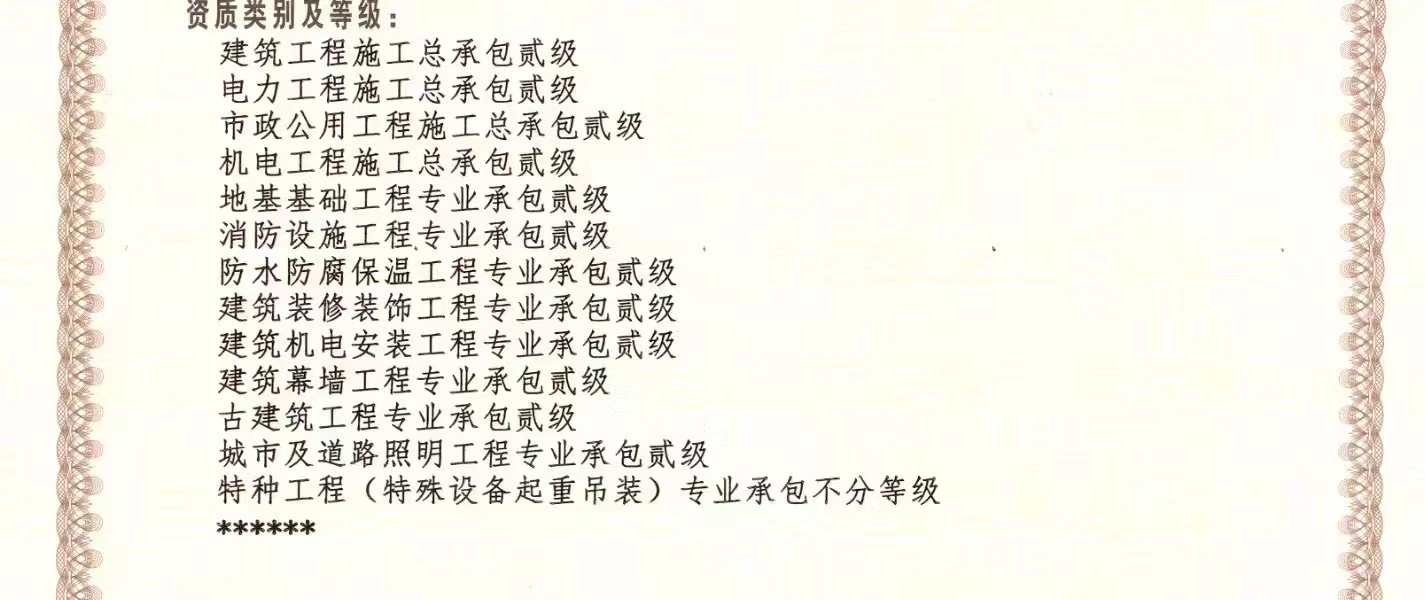 资质类别及等级：
建筑工程施工总承包贰级
电力工程施工总承包贰级
市政公用工程施工总承包贰级
机电工程施工总承包贰级
地基基础工程专业承包贰级
消防设施工程专业承包贰级
防水防腐保温工程专业承包贰级
建筑装修装饰工程专业承包贰级
建筑机电安装工程专业承包贰级
建筑幕墙工程专业承包贰级
古建筑工程专业承包贰级
城市及道路照明工程专业承包贰级
特种工程（特殊设备起重吊装）专业承包不分等级
******